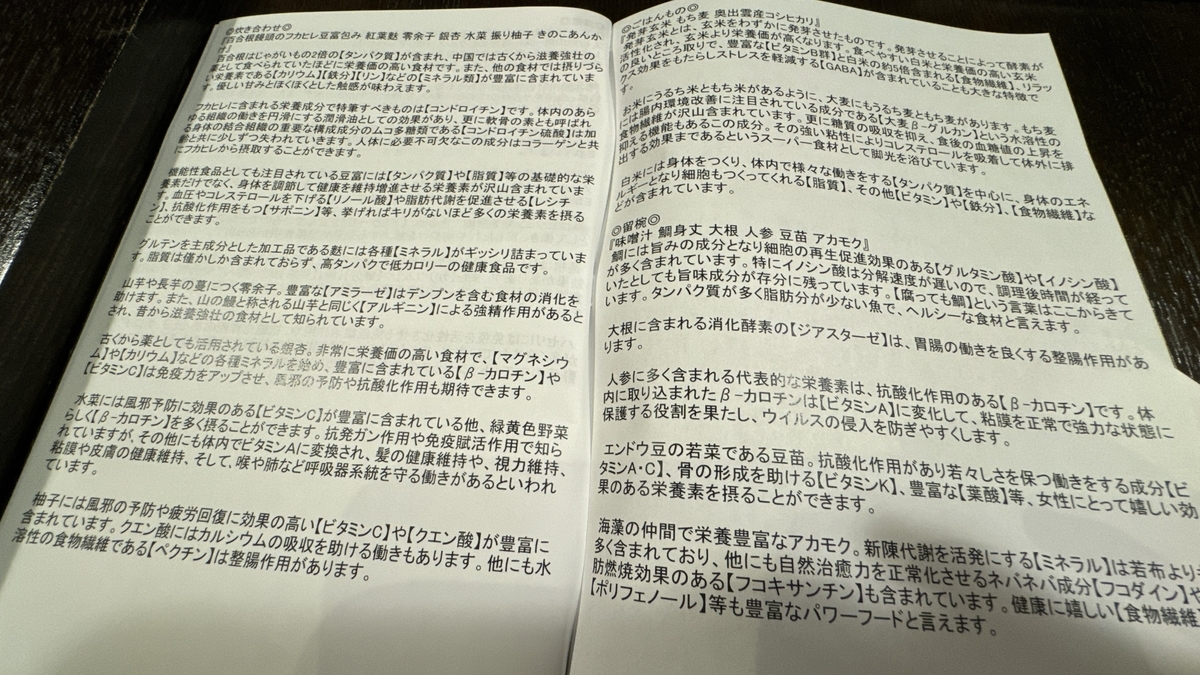 ◎炊き合わせ◎
『百合根饅頭のフカヒレ豆富包み 紅葉麩 零余子 銀杏 水菜 振り柚子 きのこあんか
け』
百合根はじゃがいもの2倍の【タンパク質】が含まれ、中国では古くから滋養強壮の
薬として食べられていたほどに栄養価の高い食材です。また、他の食材では摂りづら
い栄養素である【カリウム】【鉄分】【リン】などの【ミネラル類】が豊富に含まれていま
す。優しい甘みとほくほくとした触感が味わえます。
フカヒレに含まれる栄養成分で特筆すべきものは【コンドロイチン】です。体内のあら
ゆる組織の働きを円滑にする潤滑油としての効果があり、更に軟骨の素とも呼ばれ
る身体の結合組織の重要な構成成分のムコ多糖類である【コンドロイチン硫酸】は加
齢と共に少しずつ失われていきます。人体に必要不可欠なこの成分はコラーゲンと共
にフカヒレから摂取することができます。
機能性食品としても注目されている豆富には【タンパク質】や【脂質】等の基礎的な栄
養素だけでなく、身体を調節して健康を維持増進させる栄養素が沢山含まれていま
す。血圧やコレステロールを下げる【リノール酸】や脂肪代謝を促進させる【レシチ
ン】、抗酸化作用をもつ【サポニン】等、挙げればキリがないほど多くの栄養素を摂る
ことができます。
グルテンを主成分とした加工品である麩には各種【ミネラル】がギッシリ詰まっていま
す。脂質は僅かしか含まれておらず、高タンパクで低カロリーの健康食品です。
山芋や長芋の蔓につく零余子。豊富な【アミラーゼ】はデンプンを含む食材の消化を
助けます。また、山の鰻と称される山芋と同じく【アルギニン】による強精作用があると
され、昔から滋養強壮の食材として知られています。
古くから薬としても活用されている銀杏。非常に栄養価の高い食材で、【マグネシウ
ム】や【カリウム】などの各種ミネラルを始め、豊富に含まれている【β-カロチン】や
【ビタミンC】は免疫力をアップさせ、風邪の予防や抗酸化作用も期待できます。
水菜には風邪予防に効果のある【ビタミンC】が豊富に含まれている他、緑黄色野菜
らしく【β-カロチン】を多く摂ることができます。抗発ガン作用や免疫賦活作用で知ら
れていますが、その他にも体内でビタミンAに変換され、髪の健康維持や、視力維持、
粘膜や皮膚の健康維持、そして、喉や肺など呼吸器系統を守る働きがあるといわれ
ています。
柚子には風邪の予防や疲労回復に効果の高い【ビタミンC】や【クエン酸】が豊富に
含まれています。クエン酸にはカルシウムの吸収を助ける働きもあります。他にも水
溶性の食物繊維である【ペクチン】は整腸作用があります。
◎ごはんもの◎
『発芽玄米 もち麦 奥出雲産コシヒカリ』
発芽玄米とは、玄米をわずかに発芽させたものです。発芽させることによって酵素が
活性化され、玄米より栄養価が高くなります。食べやすい白米と栄養価の高い玄米
の良いところ取りで、豊富な【ビタミンB群】と白米の約5倍含まれる【食物繊維】、リラッ
クス効果をもたらしストレスを軽減する【GABA】が含まれていることも大きな特徴で
す。
お米にうるち米ともち米があるように、大麦にもうるち麦ともち麦があります。もち麦
には腸内環境改善に注目されている成分である【大麦β-グルカン】という水溶性の
食物繊維が沢山含まれています。更に糖質の吸収を抑え、食後の血糖値の上昇を
抑える機能もあるこの成分。その強い粘性によりコレステロールを吸着して体外に排
出する効果まであるというスーパー食材として脚光を浴びています。
白米には身体をつくり、体内で様々な働きをする【タンパク質】を中心に、身体のエネ
ルギーとなり細胞もつくってくれる【脂質】、その他【ビタミン】や【鉄分】、【食物繊維】な
どが含まれています。
◎留椀◎
『味噌汁 鯛身丈 大根 人参 豆苗 アカモク』
鯛には旨みの成分となり細胞の再生促進効果のある【グルタミン酸】や【イノシン酸】
が多く含まれています。特にイノシン酸は分解速度が遅いので、調理後時間が経って
いたとしても旨味成分が存分に残っています。【腐っても鯛】という言葉はここからきて
います。タンパク質が多く脂肪分が少ない魚で、ヘルシーな食材と言えます。
大根に含まれる消化酵素の【ジアスターゼ】は、胃腸の働きを良くする整腸作用があ
ります。
人参に多く含まれる代表的な栄養素は、抗酸化作用のある【β-カロチン】です。体
内に取り込まれたβ-カロチンは【ビタミンA】に変化して、粘膜を正常で強力な状態に
保護する役割を果たし、ウイルスの侵入を防ぎやすくします。
エンドウ豆の若菜である豆苗。抗酸化作用があり若々しさを保つ働きをする成分【ビ
タミンA・C】、骨の形成を助ける【ビタミンK】、豊富な【葉酸】等、女性にとって嬉しい効
果のある栄養素を摂ることができます。
海藻の仲間で栄養豊富なアカモク。新陳代謝を活発にする【ミネラル】は若布よりも
多く含まれており、他にも自然治癒力を正常化させるネバネバ成分【フコダイン】や
肪燃焼効果のある【フコキサンチン】も含まれています。健康に嬉しい【食物繊維】
【ポリフェノール】等も豊富なパワーフードと言えます。